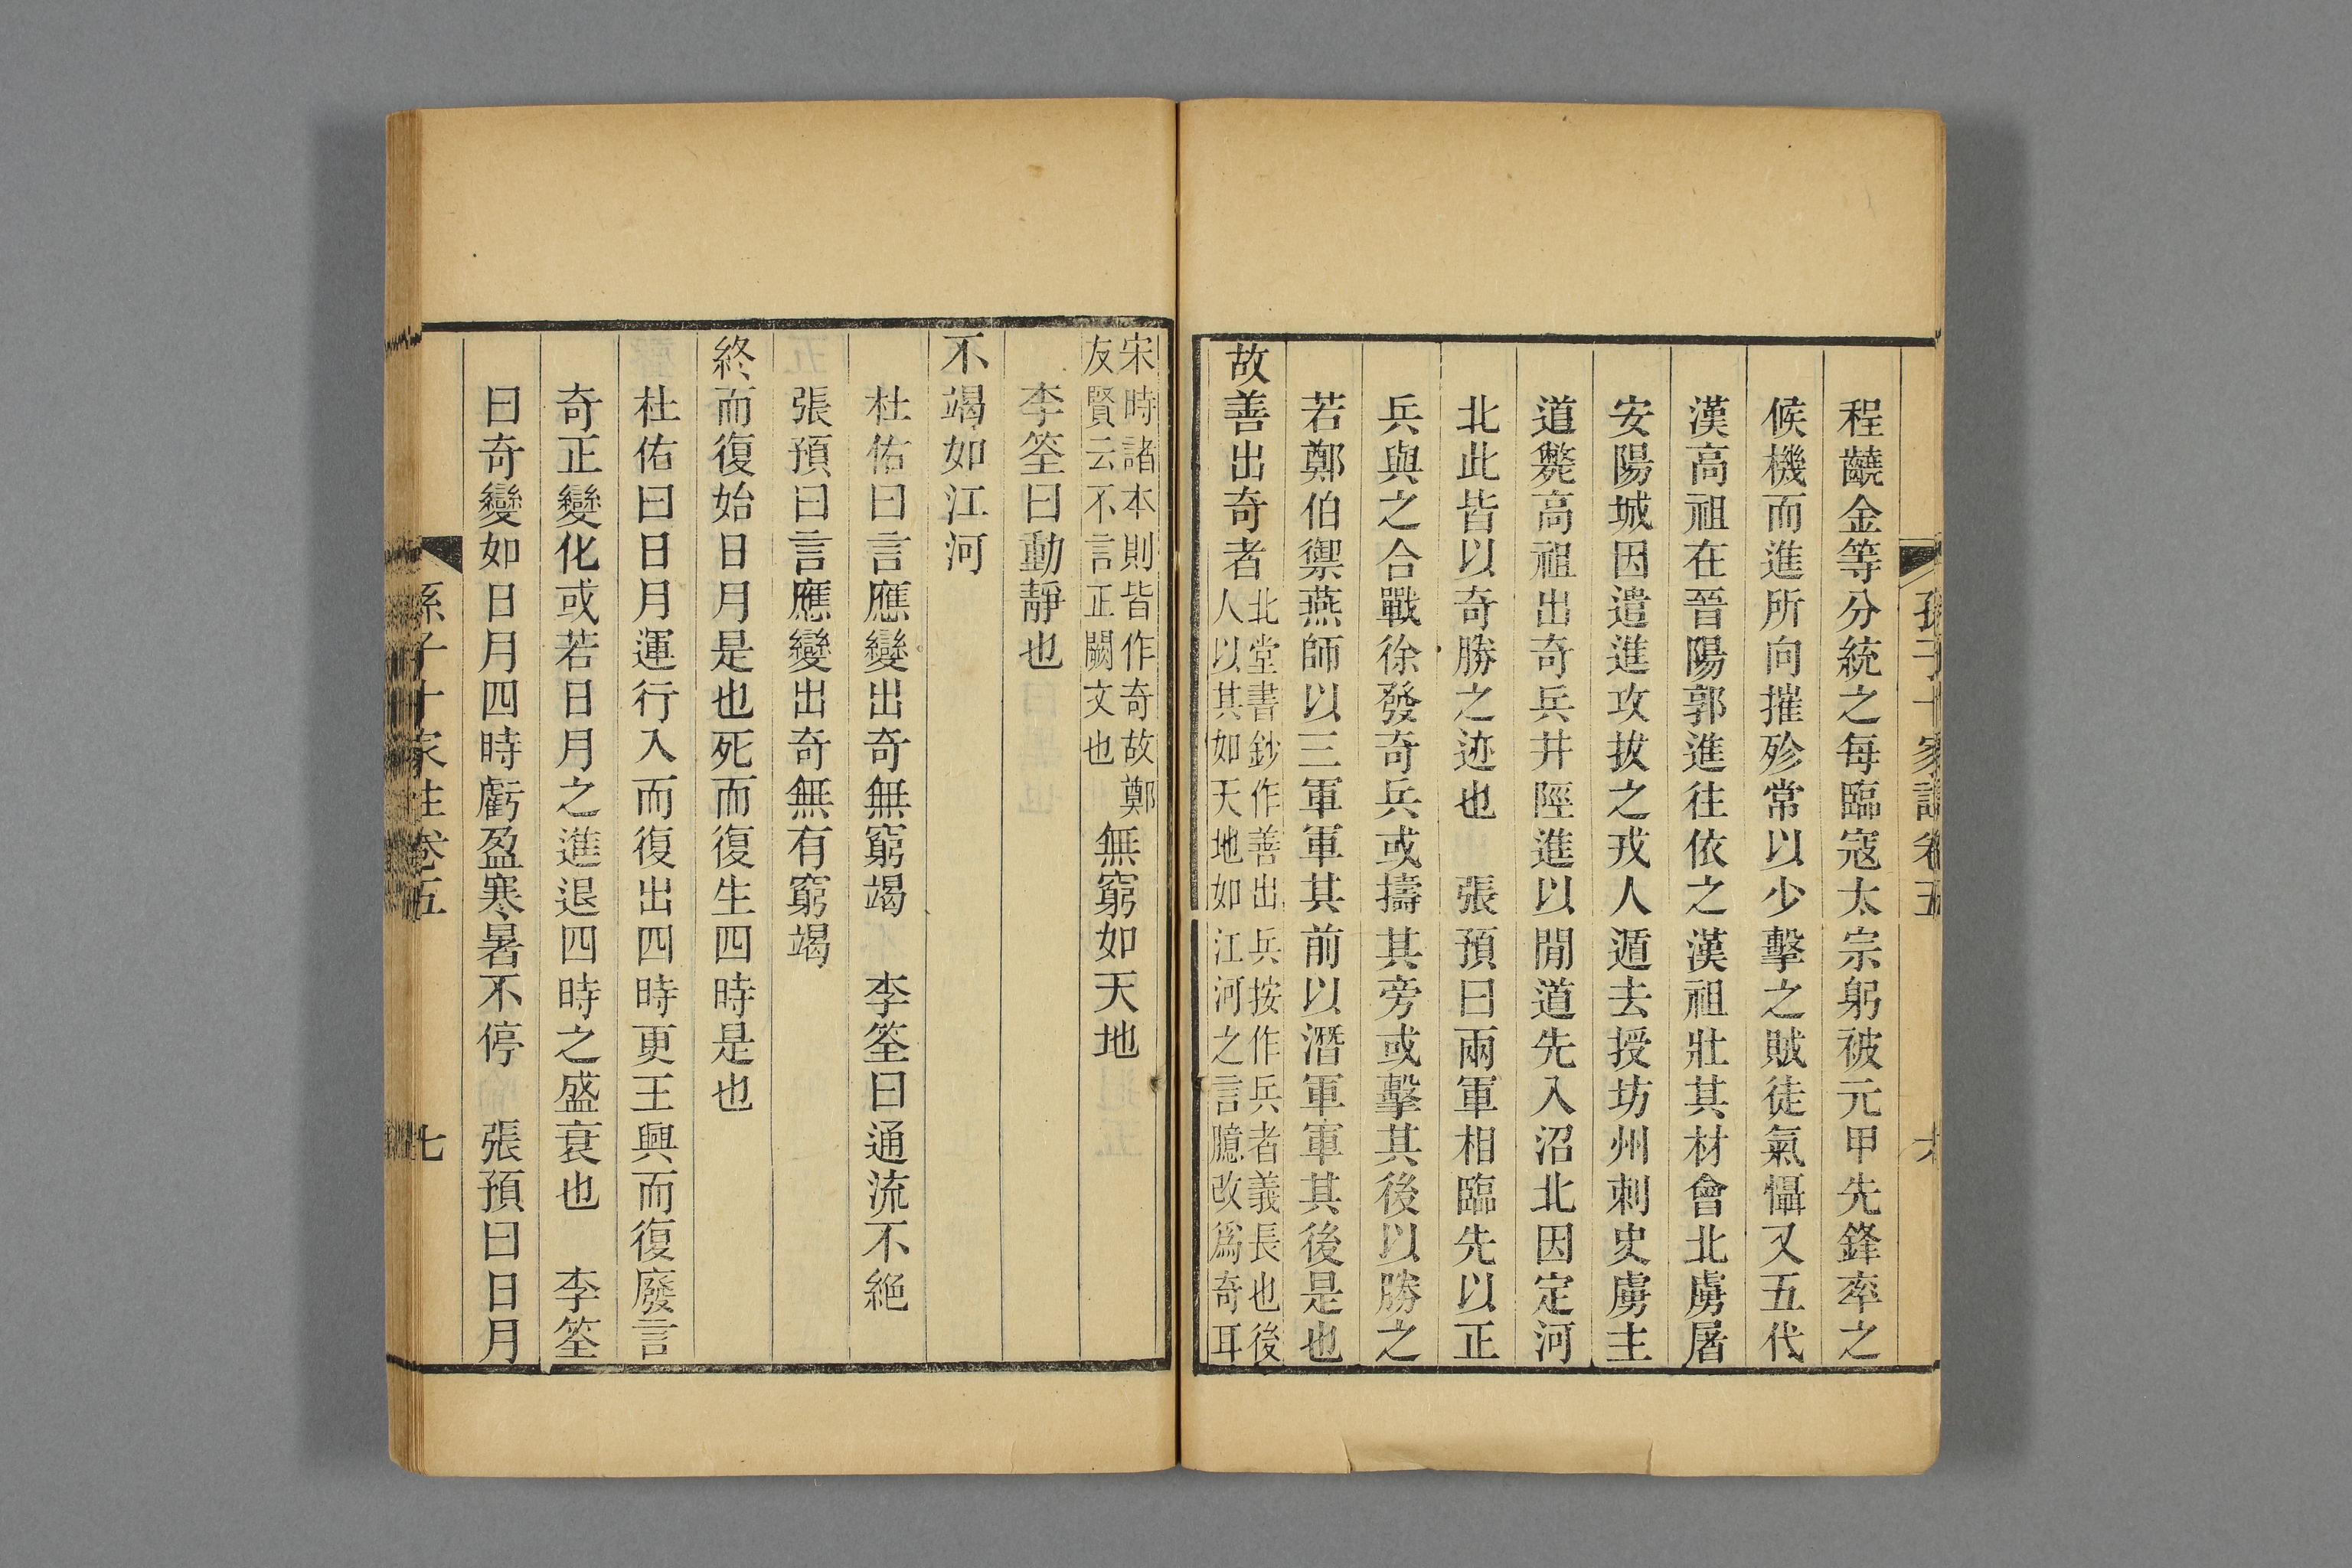 程齩金等分統之每臨寇太宗躬被元甲先鋒率之
候機而進所向摧殄常以少擊之賊徒氣懾又五代
漢高祖在晉陽郭進往依之漢祖壯其材會北虜屠
安陽城因遣進攻拔之戎人遁去授坊州刺史虜主
道斃高祖出奇兵井陘進以閒道先入沼北因定河
北此皆以奇勝之迹也 張預曰兩軍相臨先以正
兵與之合戰徐發奇兵或擣其旁或擊其後以勝之
若鄭伯禦燕師以三軍軍其前以潛軍軍其後是也
故善出奇者
北堂書鈔作善出兵按作兵者義長也後
人以其如天地如江河之言臆改爲奇耳
宋時諸本則皆作奇故鄭
友賢云不言正闕文也
無窮如天地
李筌曰動靜也
不竭如江河
杜佑曰言應變出奇無窮竭 李筌曰通流不絕
張預曰言應變出奇無有窮竭
終而復始日月是也死而復生四時是也
杜佑曰日月運行入而復出四時更王興而復廢言
奇正變化或若日月之進退四時之盛衰也 李筌
曰奇變如日月四時虧盈寒暑不停 張預曰日月
孫子十家註卷五
七